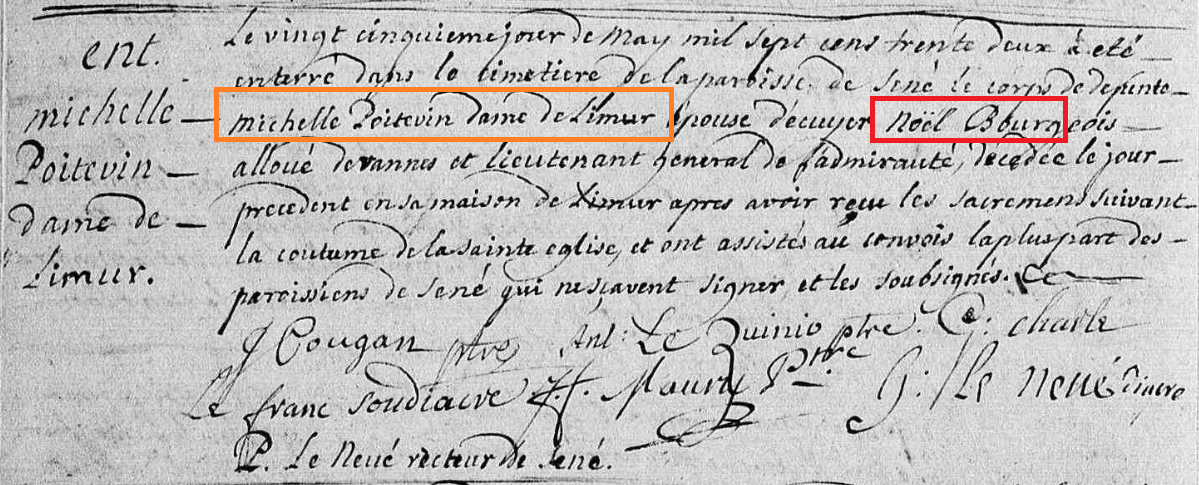 ent.
michelle
Poitevin
dame de
Limur.
Le vingt cinquieme jour de May mil sept cens trente deux a eté
enterré dans le cimetiere de la paroisse de sené le corps de defunte
michelle Poitevin dame de Limur epouse d'ecuyer Noël Bourgeois
alloué de vannes et lieutenant general de l'admirauté, décedée le jour
precedent en sa maison de Limur apres avoir reçu les sacremens suivant
la coutume de la sainte eglise, et ont assistés au convois la pluspart des
paroissiens de sené qui ne sçavent signer, et les soubsignés.
J Cougan ptre Ant: Le Quinio ptre. C: charle
Le franc soudiacre Maury Ptre G: le Nevé diacre
P. Le Nevé recteur de sené.